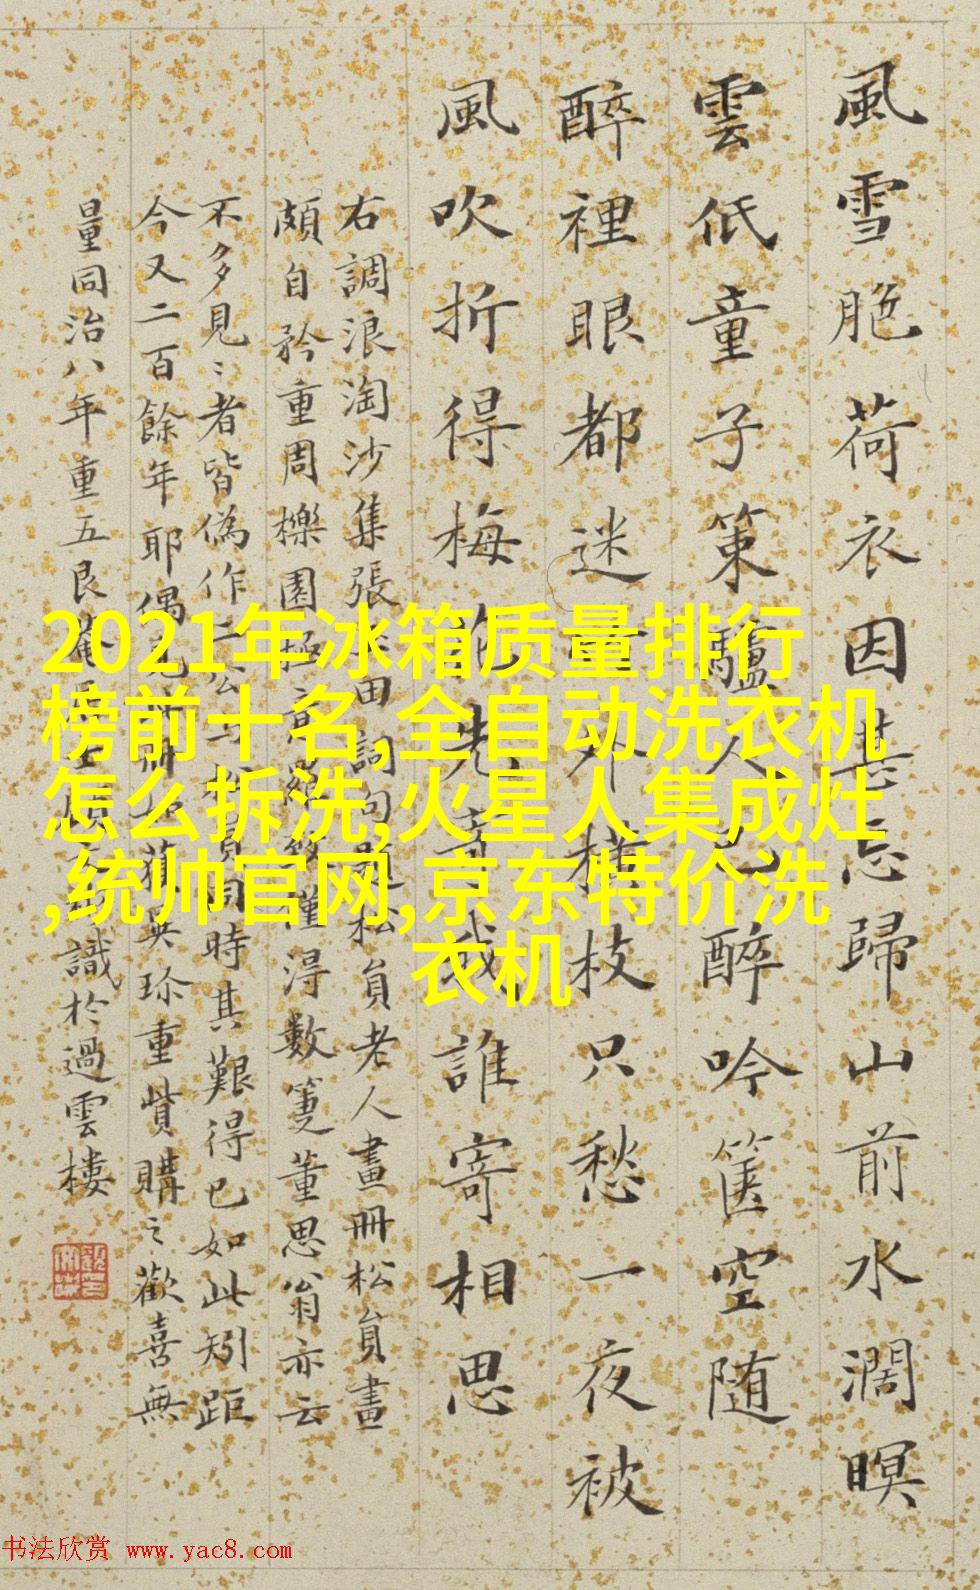 風雪脃荷衣因甚忘歸山前水濶暝
雲低童子策驢人醉吟篋空随
醉裡眼都迷外横枝只愁一夜被
風吹折得梅花先我誰寄相思
右調浪淘沙集張田詞句松員老人畫冊松員畫
頗自矜重周櫟園極僅得數箑董思翁亦云
不多見〻者皆偽作同時其艱得已如此矧距
今又二百餘年耶偶見珍重貲購之歡喜無
量同治八年重五艮菴識於過雲樓
2021年冰箱质量排行
榜前十名,全自动洗衣机
怎么拆洗,火星人集成灶
,统帅官网,京东特价洗
衣机
书法欣赏 www.yac8.com